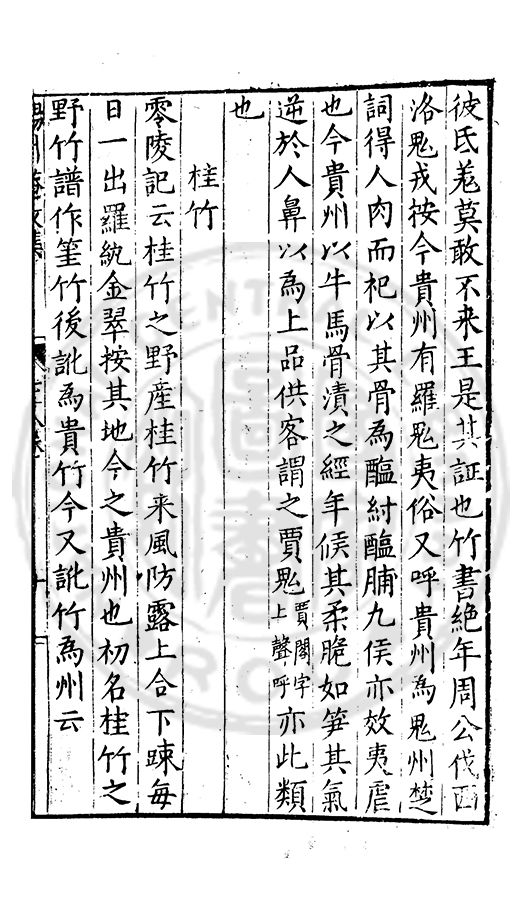 彼氐羌莫敢不来王是其証也竹書絶年周公伐西
洛鬼戎按今貴州有羅鬼夷俗又呼貴州為鬼州楚
詞得人肉而祀以其骨為醢紂醢脯九侯亦效夷虐
也今貴州以牛馬骨漬之經年候其柔脆如笋其氣
逆於人鼻以為上品供客謂之賈鬼賈閣字上聲呼亦此類
也
桂竹
零陵記云桂竹之野産桂竹来風防露上合下踈每
日一出羅紈金翠按其地今之貴州也初名桂竹之
野竹譜作筀竹後訛為貴竹今又訛竹為州云